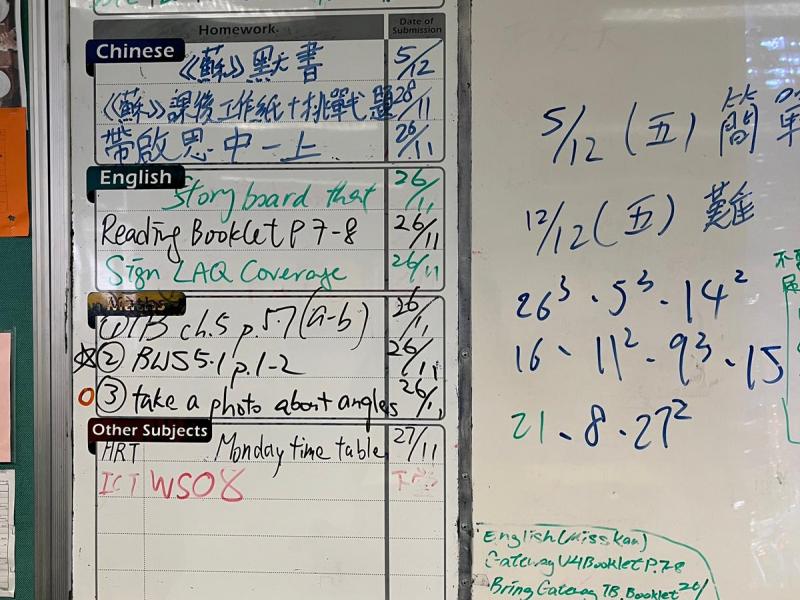 Homework
Date of Submission
Chinese
《蘇》默書 5/12
《蘇》課後工作紙+挑戰題 28/11
帶啟思中一上 26/11
English
Storyboard that 26/11
Reading Booklet P 7-8 26/11
Sign LAQ Coverage 26/11
Maths
① TB ch.5 p.5.7 (a-b) 26/11
☆② BWS 5.1 p.1-2 26/11
③ take a photo about angles 26/11
Other Subjects
HRT Monday time table 27/11
ICT WS08
5/12 (五) 簡單
12/12 (五) 難
26³、5³、14²
16、11²、9³、15
21、8、27²
English (Miss Kan)
Gateway V4 Booklet P.7-8
Bring Gateway TB, Booklet 26/